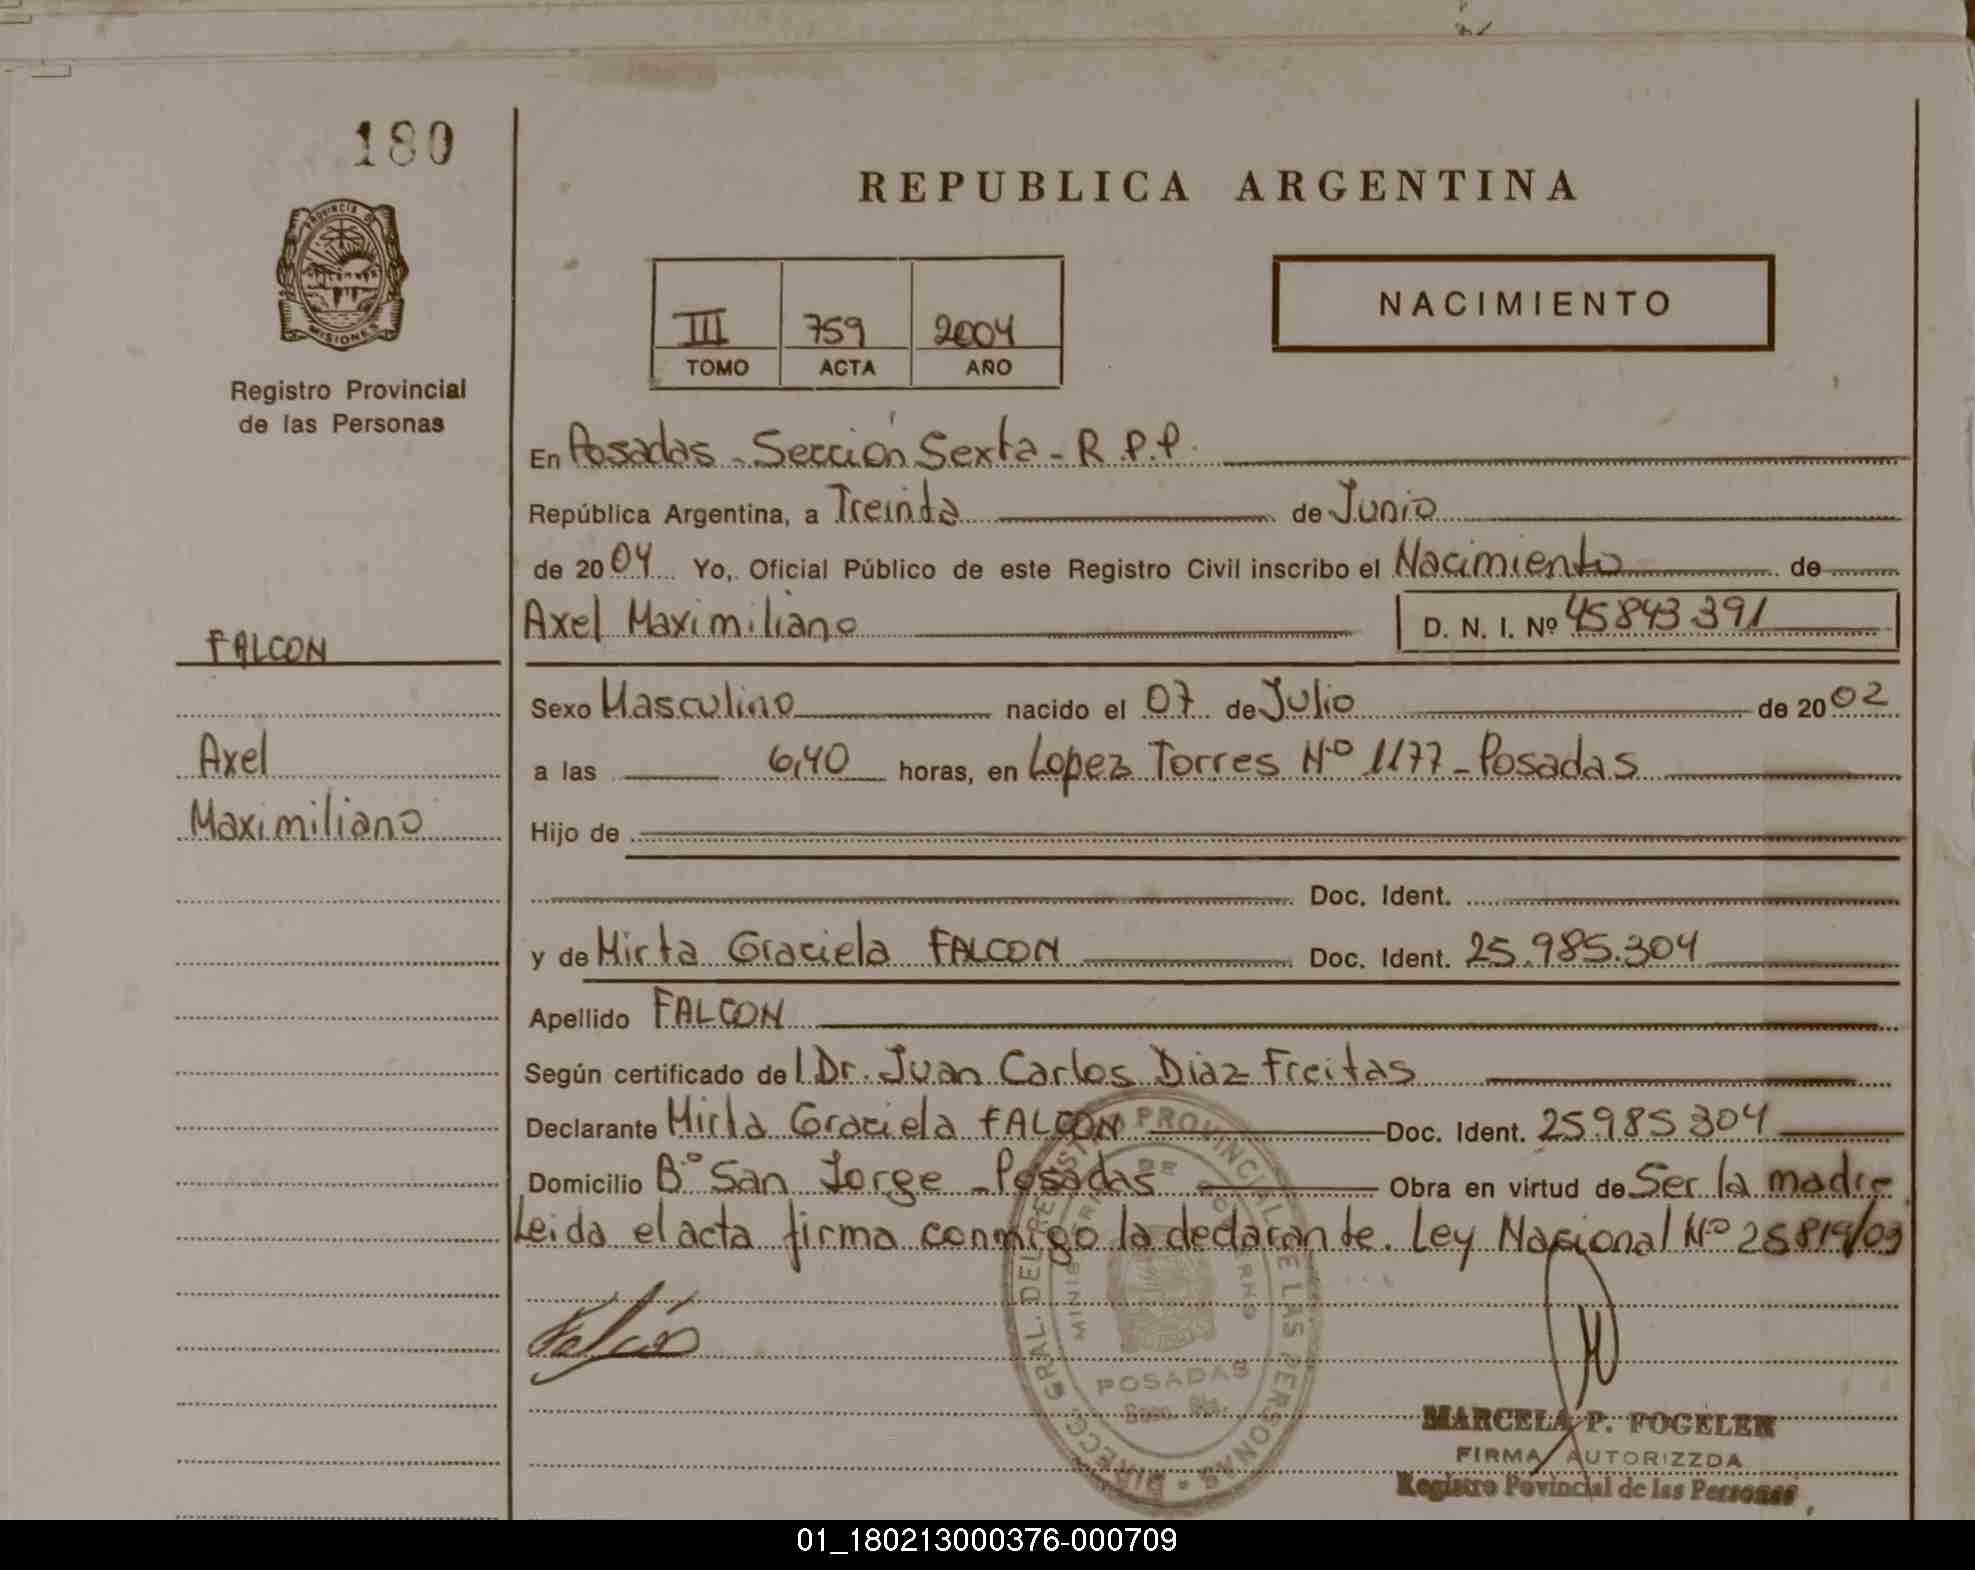 180
REPUBLICA ARGENTINA
PROVINCIA D
MISIONES
Registro Provincial
de las Personas
III 759 2004
TOMO ACTA AÑO
NACIMIENTO
En Posadas - Sección Sexta - R.P.P.
República Argentina, a Treinta de Junio
de 2004 Yo, Oficial Público de este Registro Civil inscribo el Nacimiento de
Axel Maximiliano D. N. I. Nº 45843391
FALCON
Sexo Masculino nacido el 07 de Julio de 2002
Axel
a las 6,40 horas, en Lopez Torres Nº 1177 - Posadas
Maximiliano
Hijo de
Doc. Ident.
y de Mirta Graciela FALCON Doc. Ident. 25.985.304
Apellido FALCON
Según certificado del Dr. Juan Carlos Diaz Freitas
Declarante Mirta Graciela FALCON Doc. Ident. 25985304
Domicilio Bº San Jorge - Posadas Obra en virtud de Ser la madre
Leida el acta firma conmigo la declarante. Ley Nacional Nº 25819/03
Falcón
DIRECC. GRAL. DEL REGISTRO PROVINCIAL DE LAS PERSONAS
MINISTERIO DE GOBIERNO
POSADAS
MARCELA P. FOGELER
FIRMA AUTORIZZDA
Registro Povincial de las Personas
01_180213000376-000709